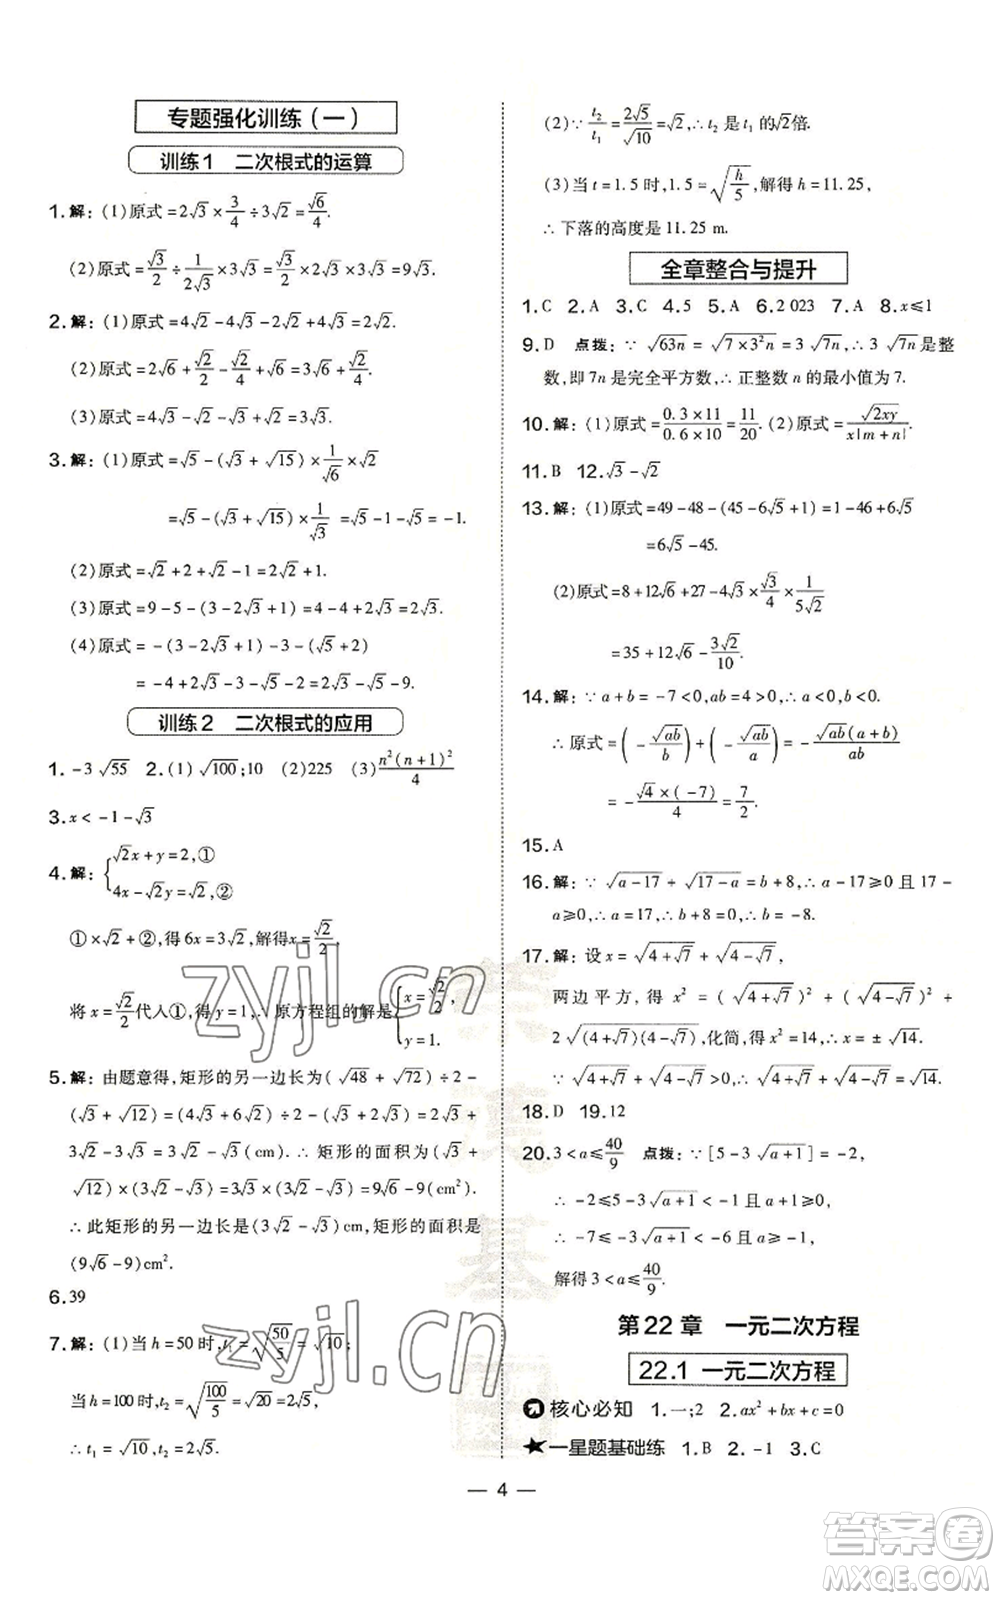 专题强化训练(一)
训练1 二次根式的运算
1.解:(1)原式=2√3×3/4÷3√2=√6/4.
(2)原式=√3/2÷1/(2√3)×3√3=√3/2×2√3×3√3=9√3.
2.解:(1)原式=4√2-4√3-2√2+4√3=2√2.
(2)原式=2√6+√2/2-√2/4+√6=3√6+√2/4.
(3)原式=4√3-√3+2√3=5√3.
3.解:(1)原式=√5-(√3+√15)×1/√6×√2
=√5-(√3+√15)×1/√3=√5-1-√5=-1.
(2)原式=√2+2+√2-1=2√2+1.
(3)原式=9-5-(3-2√3+1)=4-4+2√3=2√3.
(4)原式=-(3-2√3+1)-3-(√5+2)
=-4+2√3-3-√5-2=2√3-√5-9.
训练2 二次根式的应用
1.-3√55 2.(1)√100;10 (2)225 (3)n²(n+1)²/4
3.x<-1-√3
4.解:{√2x+y=2,①
4x-√2y=√2,②
①×√2+②,得6x=3√2,解得x=√2/2.
将x=√2/2代入①,得y=1,∴原方程组的解是{x=√2/2,
y=1.
5.解:由题意得,矩形的另一边长为(√48+√72)÷2-
(√3+√12)=(4√3+6√2)÷2-(√3+2√3)=2√3+
3√2-3√3=3√2-√3(cm).∴矩形的面积为(√3+
√12)×(3√2-√3)=3√3×(3√2-√3)=9√6-9(cm²).
∴此矩形的另一边长是(3√2-√3)cm,矩形的面积是
(9√6-9)cm².
6.39
7.解:(1)当h=50时,t₁=√(50/5)=√10;
当h=100时,t₂=√(100/5)=√20=2√5,
∴t₁=√10,t₂=2√5.
(2)∵t₂/t₁=2√5/√10=√2,∴t₂是t₁的√2倍.
(3)当t=1.5时,1.5=√(h/5),解得h=11.25,
∴下落的高度是11.25 m.
全章整合与提升
1.C 2.A 3.C 4.5 5.A 6.2 023 7.A 8.x≤1
9.D 点拨:∵√63n=√(7×3²n)=3√7n,∴3√7n是整
数,即7n是完全平方数,∴正整数n的最小值为7.
10.解:(1)原式=(0.3×11)/(0.6×10)=11/20.(2)原式=√2xy/(x|m+n|).
11.B 12.√3-√2
13.解:(1)原式=49-48-(45-6√5+1)=1-46+6√5
=6√5-45.
(2)原式=8+12√6+27-4√3×√3/4×1/(5√2)
=35+12√6-3√2/10.
14.解:∵a+b=-7<0,ab=4>0,∴a<0,b<0.
∴原式=(-√ab/b)+(-√ab/a)=-√ab(a+b)/ab
=-√4×(-7)/4=7/2.
15.A
16.解:∵√(a-17)+√(17-a)=b+8,∴a-17≥0且17-
a≥0,∴a=17,∴b+8=0,∴b=-8.
17.解:设x=√(4+√7)+√(4-√7),
两边平方,得x²=(√(4+√7))²+(√(4-√7))²+
2√((4+√7)(4-√7)),化简,得x²=14,∴x=±√14.
∵√(4+√7)+√(4-√7)>0,∴√(4+√7)+√(4-√7)=√14.
18.D 19.12
20.3<a≤40/9 点拨:∵[5-3√(a+1)]=-2,
∴-2≤5-3√(a+1)<-1,
∴-7≤-3√(a+1)<-6且a+1≥0,
解得3<a≤40/9.
第22章 一元二次方程
22.1 一元二次方程
核心必知 1.一;2 2.ax²+bx+c=0
一星题基础练 1.B 2.-1 3.C
— 4 —
zyjl.cn
zyjl.cn
答案卷
MXQE.COM